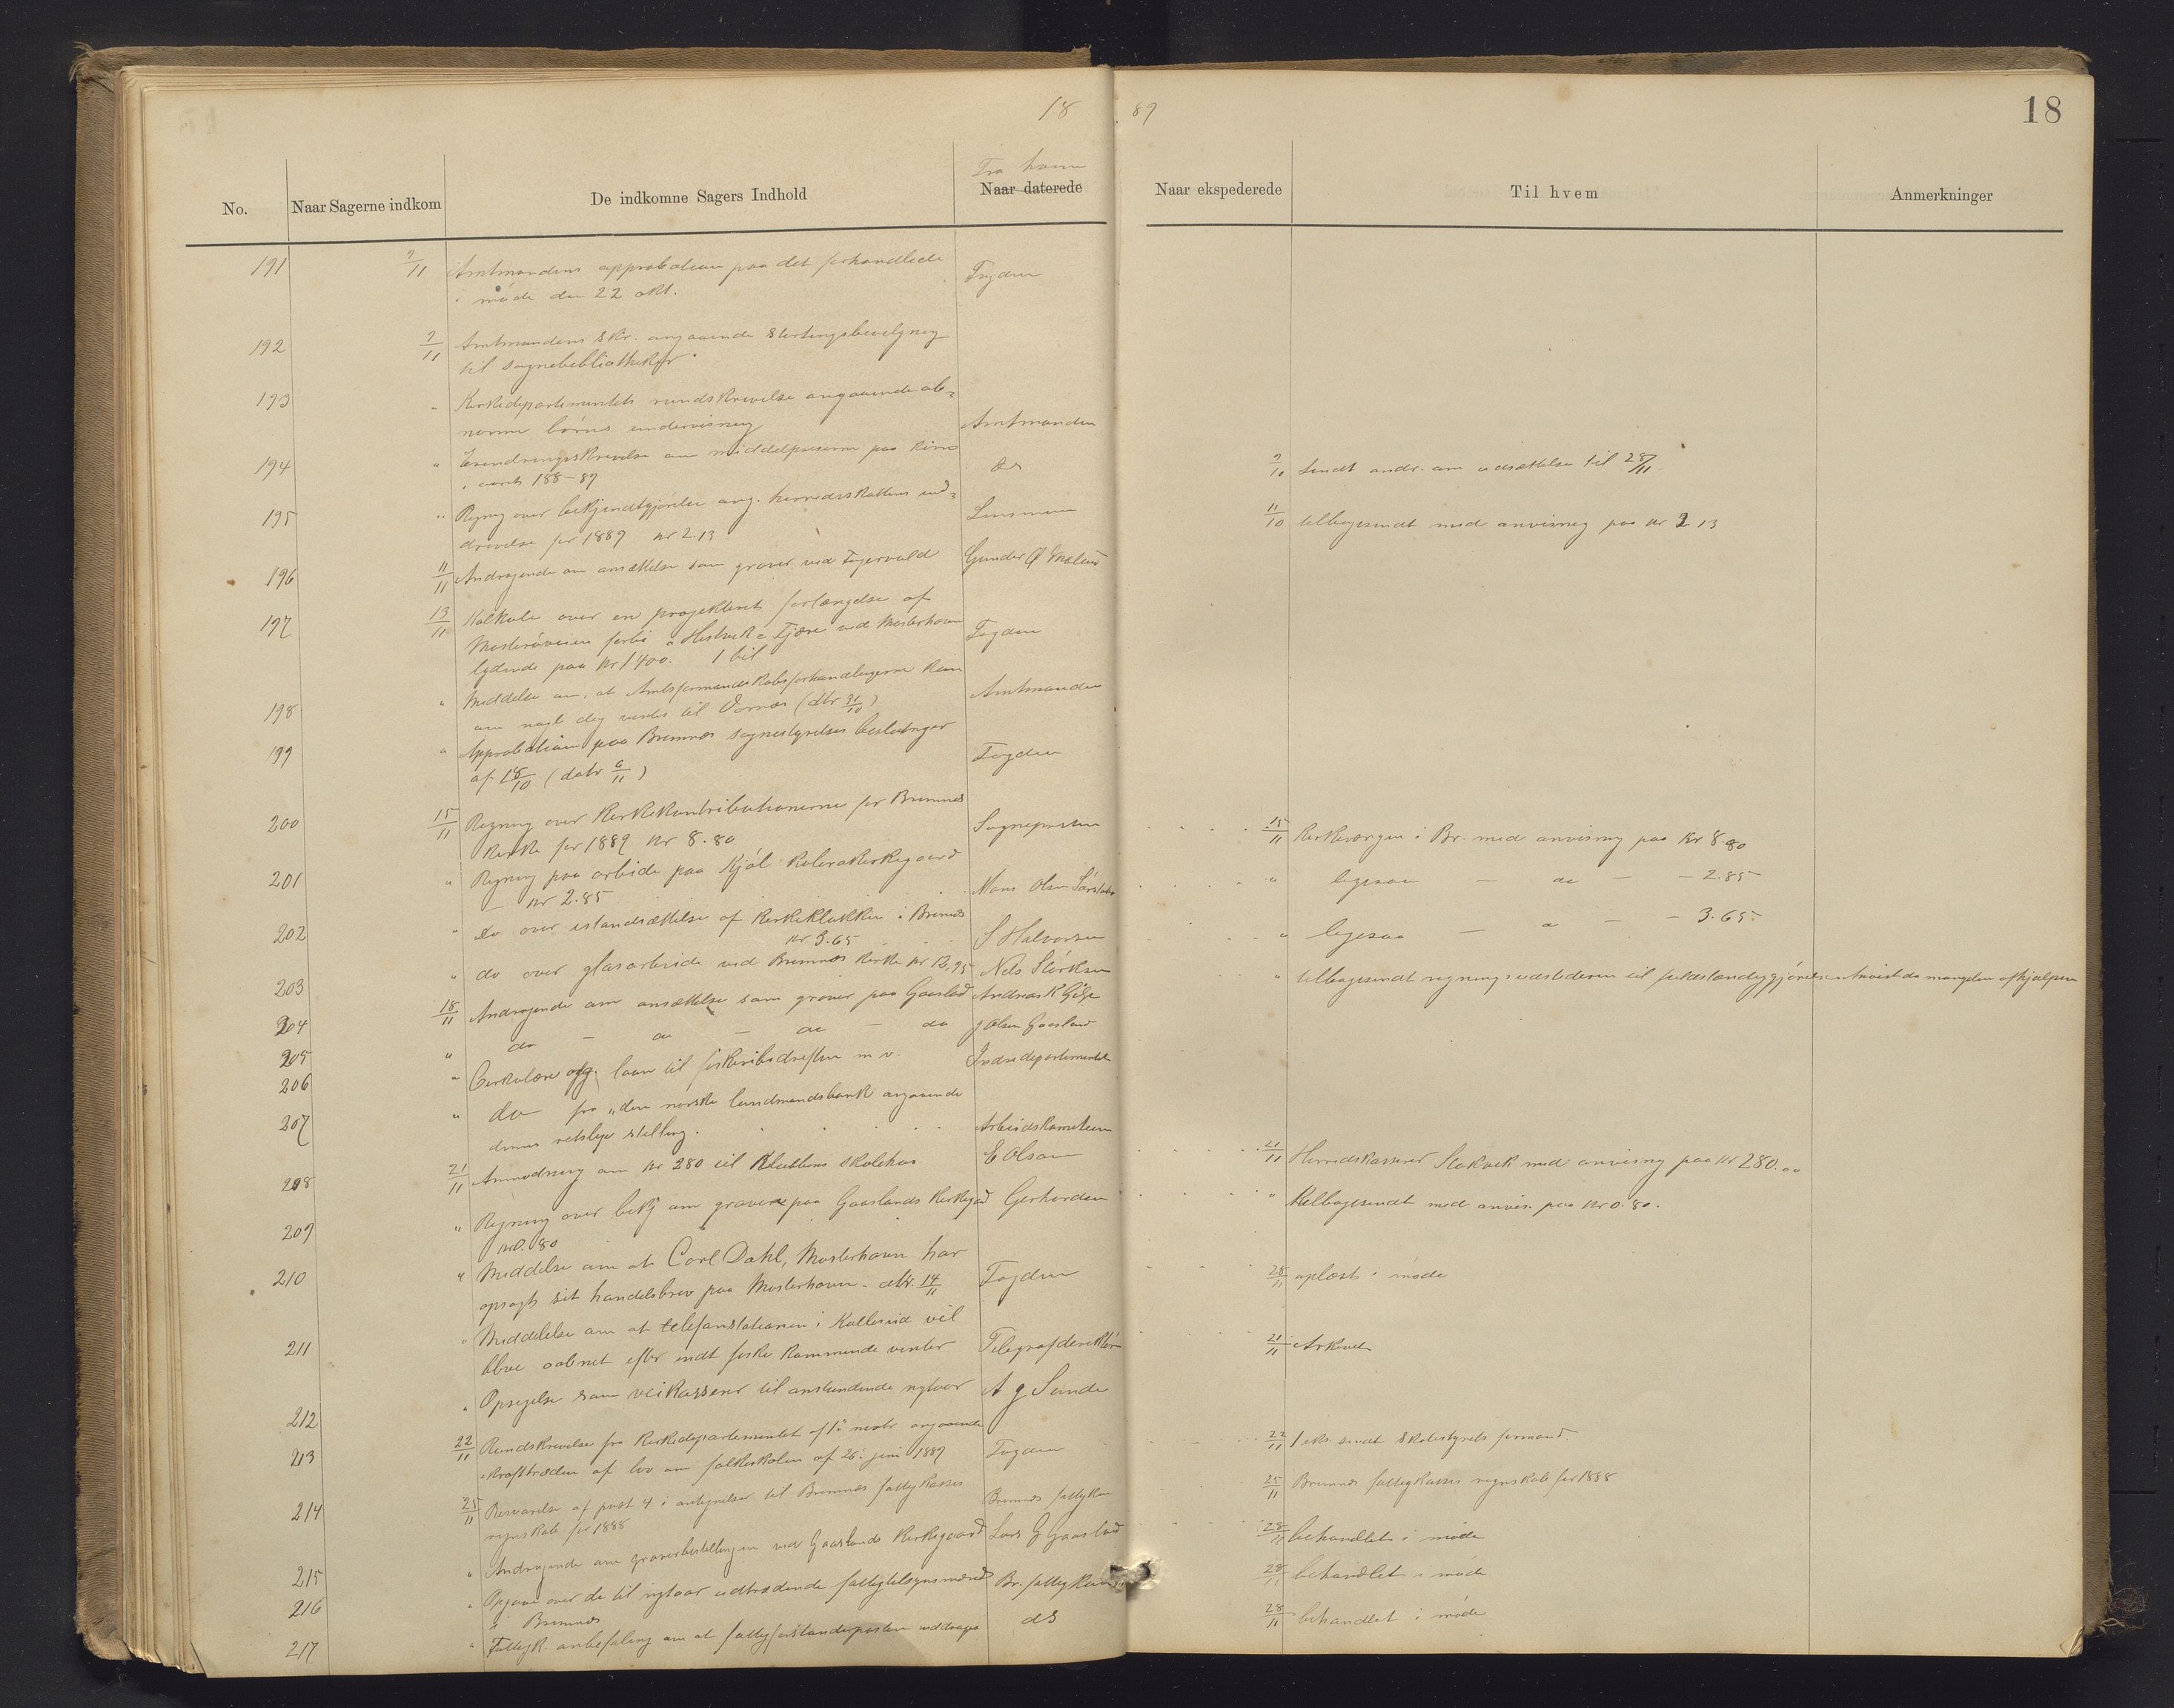 18
89
18
Fra hvem
No.
Naar Sagerne indkom
De indkomne Sagers Indhold
Naar daterede
Naar ekspederede
Til hvem
Anmerkninger
191 9/11 Amtmandens approbation paa det forhandlede Fogden
i møde den 22 okt.
192 9/11 Amtmandens skr. angaaende stortingsbevilgning
til sognebibliotheker
193 " Kirkedepartementets rundskrivelse angaaende ab=
norme børns undervisning Amtmanden
194 " Erindringsskrivelse om middelpriserne paa
i aaret 188-89 ds 9/10 Sendt andr. om udsættelse til 28/11
195 " Regning over bekjendtgjørelse ang. herredsskattens ind= Lensmanden
drivelse for 1889 kr 2.13 11/10 tilbagesendt med anvisning paa kr 2 13
196 11/11 Andragende om ansættelse som graver ved Gunder
197 13/11 Kalkule over en projekteret forlængelse af
Mosterøveien forbi ved Mosterhavn Fogden
lydende paa kr 1400. 1 bil
198 " Meddelelse om, at Amtsformandskabsforhandlingerne kan Amtmanden
om nogle dage ventes til (dtr 31/10)
199 " Approbation paa Bremnes sognestyrelses beslutninger Fogden
af 18/10 (datr 6/11)
200 15/11 Regning over Kirkekontributionerne for Bremnes Sognepresten 15/11 Kirkeværgen i Br. med anvisning paa Kr 8.80
kirke for 1889 kr 8.80
201 " Regning paa arbeide paa Kjøl Kolerakirkegaard Mons Olsen " ligesaa — do — — 2.85
— kr 2.85
202 " do over istandsættelse af kirkeklokken i Bremnes S Halvorsen " ligesaa — " — — 3.65
kr 3.65
203 " do over glasarbeide ved Bremnes kirke kr 12,95 Nels Størksen " tilbagesendt regningsudstederen til fuldstændiggjørelse Anvist da mangelen afhjulpen
204 18/11 Andragende om ansættelse som graver paa Gaasland Andreas K Gilje
205 " do — do — do — do J Olsen Gaasland
206 " Cirkulære ang. laan til fiskeribedriften m v. Indredepartementet
207 " do fra „den norske landmandsbank angaaende
dennes retslige stilling. Arbeidskomiteen
208 21/11 Anmodning om kr 280 til Klubbens skolehus E Olsen 21/11 Herredskasserer Stokvik med anvisning paa kr 280.00
209 " Regning over bekj om gravere paa Gaaslands kirkegd Gerhardsen " tilbagesendt med anvisn. paa kr 0.80.
kr 0.80
210 " Meddelse om at Carl Dahl, Mosterhavn har
opsagt sit handelsbrev paa Mosterhavn - dtr. 14/11 Fogden 28/11 oplæst i møde
211 " Meddelelse om at telefonstationen i Kulleseid vil
blive aabnet efter endt fiske kommende vinter Telegrafdirektør 21/11 Arkivet
212 " Opsigelse som veikasserer til anstundende nytaar A g Sunde
213 22/11 Rundskrivelse fra Kirkedepartementet af 1ste novbr angaaende
ikrafttræden af lov om folkeskolen af 26: juni 1889 Fogden 22/11 1 eks. sendt Skolestyrets formand.
214 25/11 Besvarelse af post 4 i antegnelser til Bremnes fattigkasses Bremnes fattigkom 25/11 Bremnes fattigkasses regnskab for 1888
regnskab for 1888
215 " Andragende om graverbestillingen ved Gaaslands kirkegaard Lars G Gaasland 28/11 behandlet i møde
216 " Opgave over de til nytaar udtrædende fattigtilsynsmænd Br. fattigkom 28/11 behandlet i møde
i Bremnes
217 " Fattigk. anbefaling om at fattigforstanderposten inddrages ds 28/11 behandlet i møde